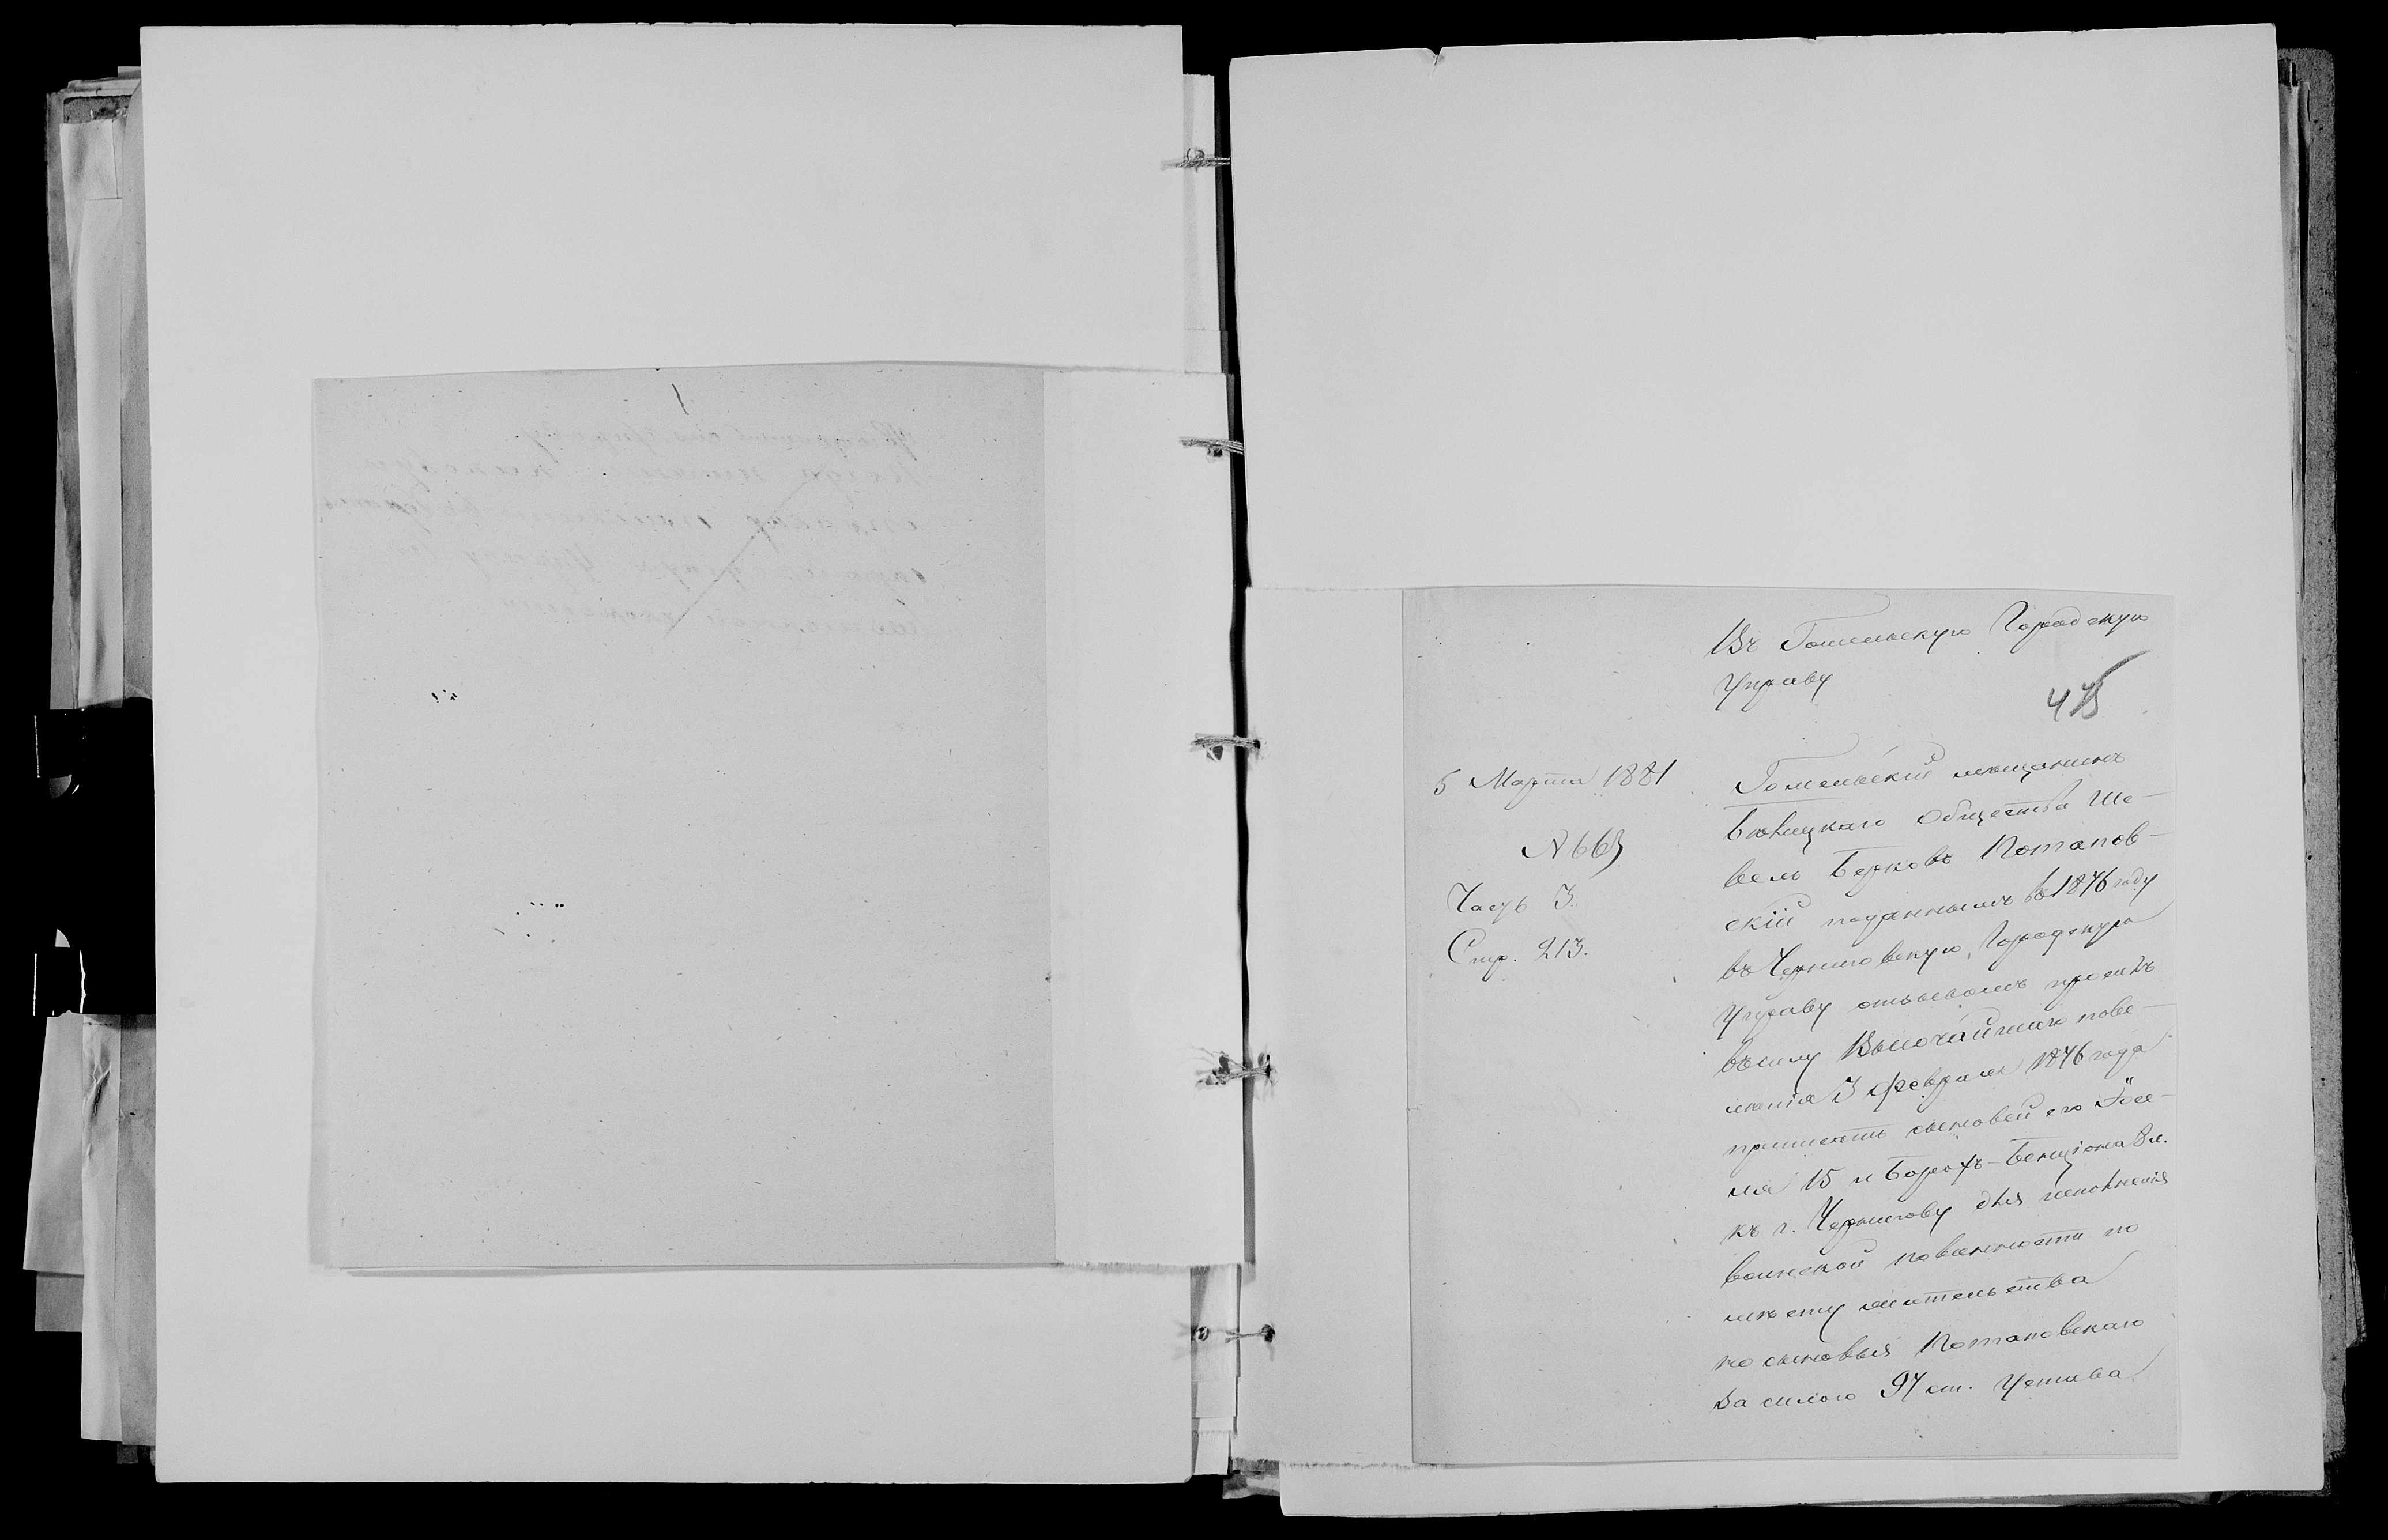 Въ Гомельскую Городскую
Управу
475
5 Марта 1881
№ 665
Часть 3.
Стр. 213.
Гомельскій мещанинъ
Бѣлицкаго Общества Ше-
вель Берковъ Потапов-
скій поданнымъ въ 1876 году
въ Черниговскую Городскую
Управу отзывомъ просилъ
въ силу Высочайшаго пове-
ленія 3 февраля 1876 года
приписать сыновей его Іосе-
ля 15 и Борохъ-Бенціона 8 л.
къ г. Чернигову для исполненія
воинской повинности по
мѣсту жительства
но сыновья Потаповскаго
за силою 97 ст. Устава